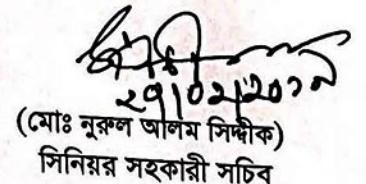 ২৭/০২/২০১৯
(মোঃ নুরুল আলম সিদ্দীক)
সিনিয়র সহকারী সচিব